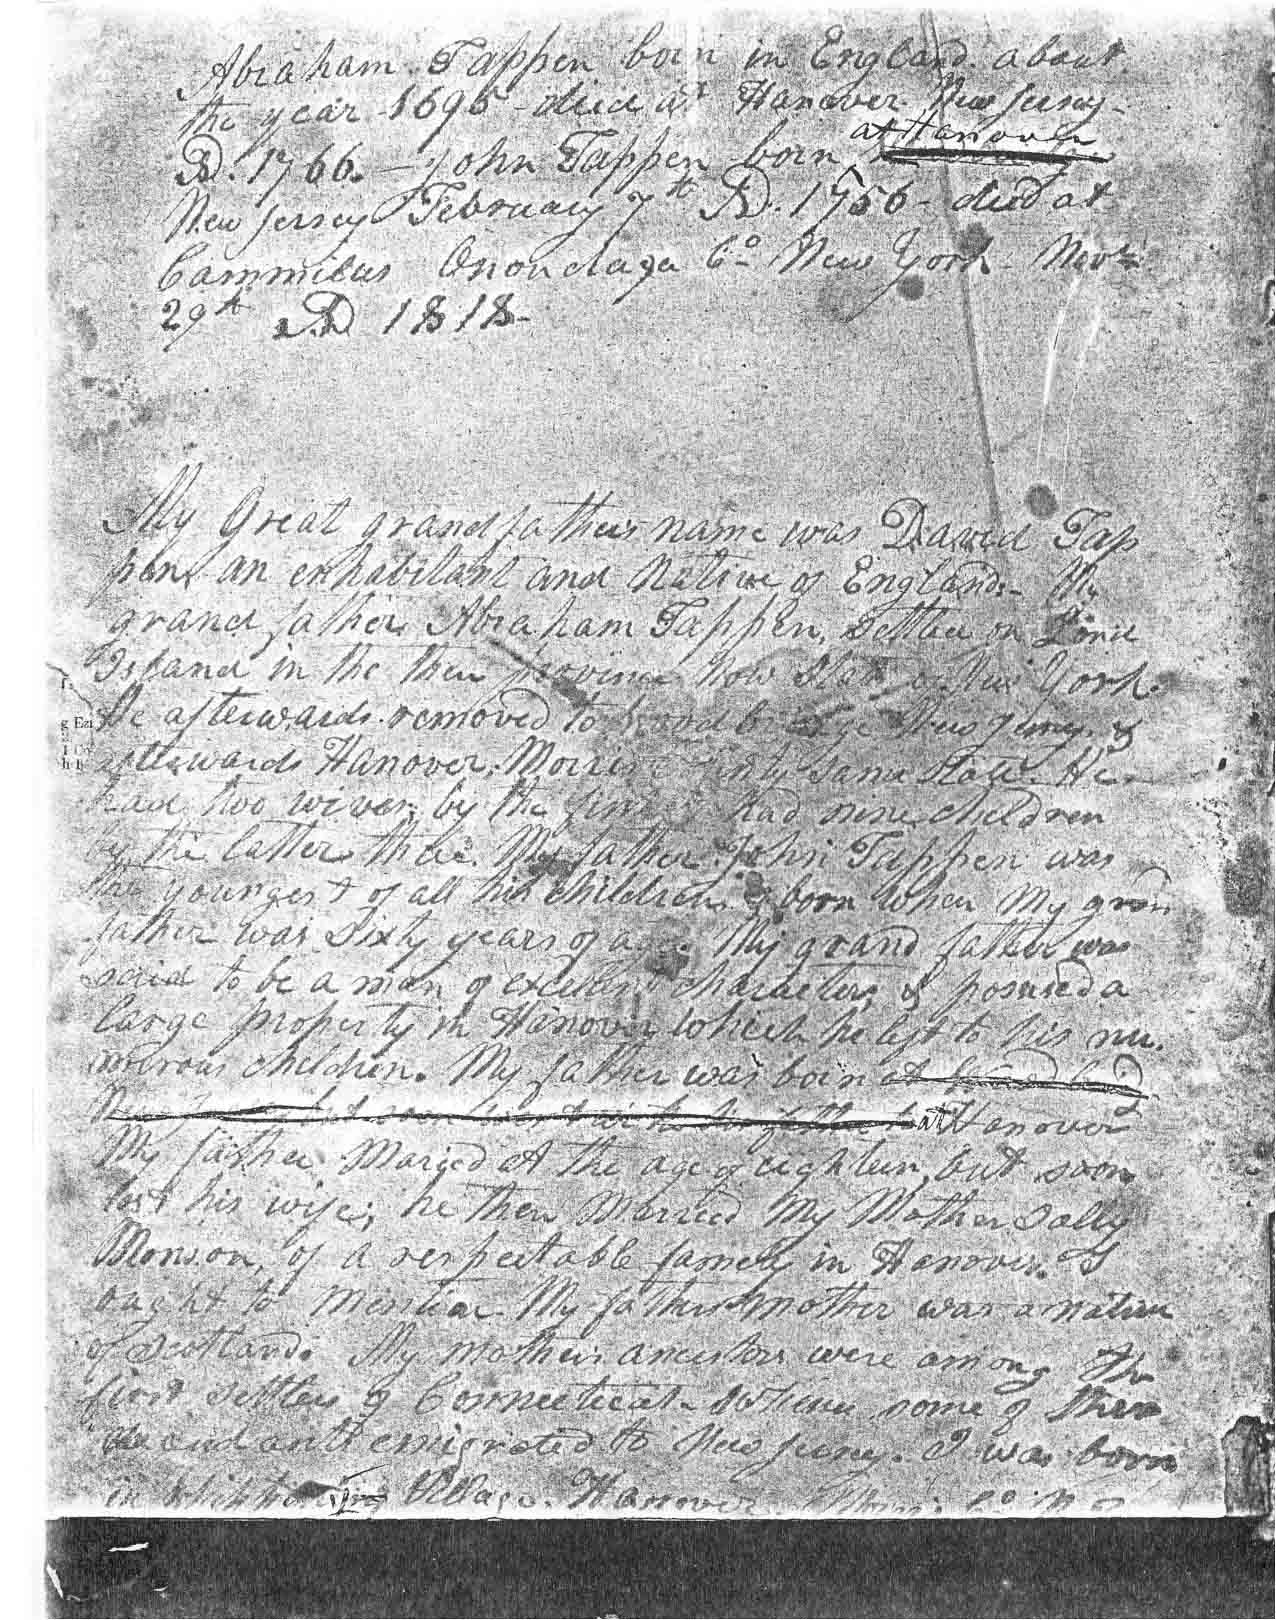 Abraham Tappen born in England about
the year 1695 - died at Hanover New Jersey -
at Hanover
AD. 1766. - John Tappen born
New Jersey February 7th AD. 1756 - died at
Cammilus Onondaga Co. New York Novr
29th AD 1818 -
My Great grandfathers name was David Tap
pen, an enhabitant and native of England - My
grand father Abraham Tappen, settled on Long
Island in the then province now State of New York.
He afterwards removed to Woodbridge New Jersey, &
afterwards Hanover, Morris same State. He
had two wives, by the first had nine children
by the latter three. My father John Tappen was
the youngest of all his children, & born when My grand
father was Sixty years of age. My grand father was
said to be a man of excellent character, & possessed a
large property in Hanover which he left to his nu-
merous children. My father was born at
at Hanover
My father Married at the age of eighteen, but soon
lost his wife; he then Married My Mother Sally
Monson, of a respectable family in Hanover. I
ought to mention My fathers mother was a native
of Scotland. My mothers ancestors were among the
first settlers of Connecticut - some of their
descendants emigrated to New Jersey. I was born
in Village, Hanover